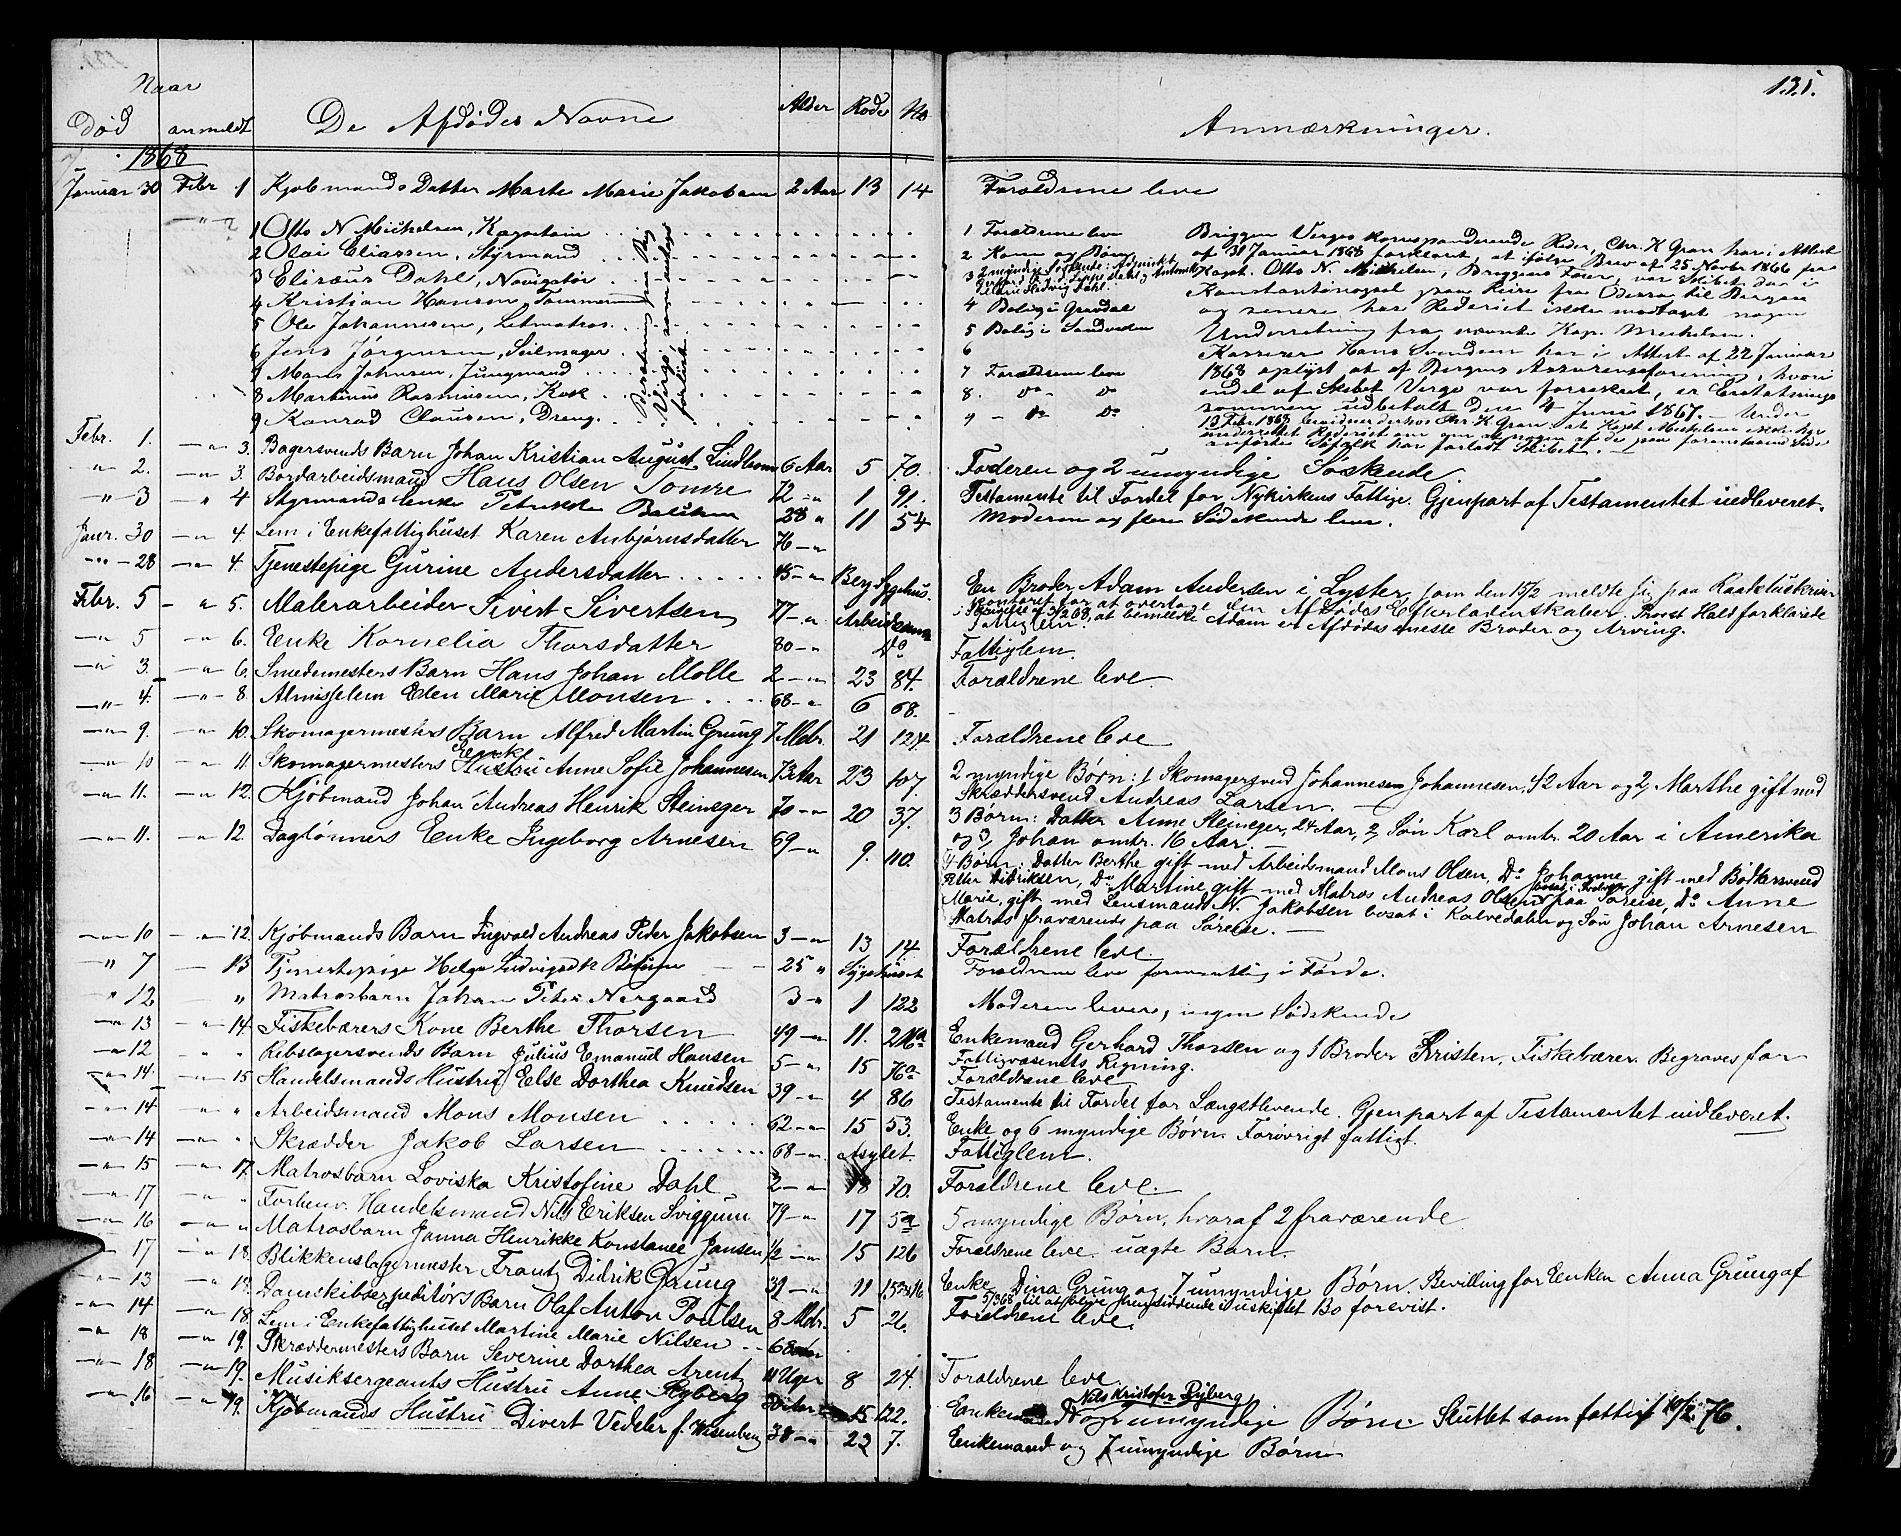 131.
Naar
Død anmeldt De Afdødes Navne Alder Rode No Anmærkninger.
1868
Januar 30 Febr 1 Kjøbmands Datter Marie Jakobsen 2 Aar 13 14 Forældrene leve
1 Otto N Michelsen, Kaptein
2 Olai Eliassen, Styrmand
3 Elizæus Dahl, Navigatør
4 Kristian Hansen Tømmermand
5 Ole Johannesen, Letmatros
6 Jens Jørgensen, Seilmager
7 Mons Johnsen, Jungmand
8 Martinus Rasmusen, Kok
9 Konrad Clausen, Dreng.
Besætning paa Brig Virgo, som antages forlist
1 Forældrene leve
2 Kone og Børn
4 Bolig i Gravdal
5 Bolig i Sandviken
6
7 Forældrene leve
8. do - do
9 - do do
Briggen Virgos korresponderende Reder, Chr. K Gran har i Attest
af 31 Januar 1868 forklaret, at ifølge Brev af 25 Novbr 1866 fra
Kapt. Otto N. Michelsen, Briggens Fører, var Skibet da i
Konstantinopel paa Reise fra Odessa til Bergen
og senere har Rederiet ikke modtaget nogen
Underretning fra nævnte Kap. Michelsen.
Kasserer Hans Svendsen har i Attest af 22 Januar
1868 oplyst at af Bergens Assuranseforening, hvori
endel af Skibet Virgo var forsikret, er Erstatnings
summen udbetalt den 4 Juni 1867. - Under
Febr. 1. 3. Bagersvends Barn Johan Kristian August Lindbom 6 Aar 5 70. Faderen og 2 umyndige Søskende.
2. 3. Bordarbeidsmand Hans Olsen Tomre 72 1 91. Testamente til Fordel for Nykirkens Fattige. Gjenpart af Testamentet indleveret.
3 4 Styrmands Enke 28 11 54 Moderen og flere Sødskende leve.
Janr. 30 4. Lem i Enkefattighuset Karen Anbjørnsdatter 76
28 4. Tjenestepige Gurine Andersdatter 45 Berg. Sygehus. En Broder, Adam Andersen i Lyster, som den 15/2 meldte sig paa
Febr. 5 5. Malerarbeider Sivert Sivertsen 77 Fattiglem.
at bemeldte Adam er Afdødes eneste Broder og Arving.
5 6. Enke Kornelia Thorsdatter 80 Do Fattiglem.
3. 6. Smedemesters Barn Hans Johan Molle 2 23 84. Forældrene leve
4. 8. Almisselem Elen Marie Monsen 68 6 68.
9. 10. Skomagermesters Barn Alfred Martin Grung 7 Mdr. 21 124 Forældrene leve
10 11 Skomagermesters Enke Anne Sofie Johannesen 73 Aar 23 107. 2 myndige Børn: 1 Skomagersvend Johannes Johannesen, 42 Aar og 2, Marthe gift med
Skræddersvend Andreas Larsen.
11. 12. Kjøbmand Johan Andreas Henrik Steineger 70 20 37. 3 Børn: Datter Anne Steineger, 24 Aar, 2, Søn Karl omtr. 20 Aar i Amerika
og 3, Johan omtr. 16 Aar.
11. 12. Daglønners Enke Ingeborg Arnesen 69 9. 110. 4 Børn: Datter Berthe gift med Arbeidsmand Mons Olsen, Do Johanne gift med Bødkersvend
Peter Didriksen, Do Martine gift med Matros Andreas Olsen paa Søreise, do Anne
Marie, gift med Lensmand N. Jakobsen bosat i Kalvedalen og Søn Johan Arnesen
Matros fraværende paa Søreise.
10 12. Kjøbmands Barn Ingvald Andreas Peder Jakobsen 3 13 14. Forældrene leve
7 13 Tjenestepige Helga Ludvigsdk 25 Sygehuset Forældrene leve formentlig i Førde.
12 Matrosbarn Johan Peter Nergaard 3 1 122 Moderen lever, ingen Sødskende
13 14. Fiskebærers Kone Berthe Thorsen 49 11. Enkemand Gerhard Thorsen og 1 Broder Kristen, Fiskebærer. Begraves for
Fattigvæsenets Regning.
12 Rebslagersvends Barn Julius Emanuel Hansen 5 15 76a Forældrene leve
14 15 Handelsmands Hustru Else Dorthea Knudsen 39 4 86 Testamente til Fordel for Længstlevende. Gjenpart af Testamentet indleveret.
14 Arbeidsmand Mons Monsen 62 15 53. Enke og 6 myndige Børn. Forøvrigt fattigt.
14 Skrædder Jakob Larsen 68 Asylet. Fattiglem.
15 17. Matrosbarn Loviska Kristofine Dahl 2 18 70. Forældrene leve.
17 Forhenv. Handelsmand Nils Eriksen Sviggum 79 17 5a 5 myndige Børn, hvoraf 2 fraværende
16 Matrosbarn Janna Henrikke Konstance Jansen 1/2 15 126 Forældrene leve. uægte Barn.
17 18. Blikkenslagermester Frantz Didrik Grung 39 11 Enke Dina Grung og 7 umyndige Børn. Bevilling for Enken Anna Grung af
5/3 68 til at blive hensiddende i uskiftet Bo forevist.
13 Damskibsexpeditørs Barn Olaf Anton Poulsen 8 Mdr. 5 26. Forældrene leve
14 18. Lem i Enkefattighuset Martine Marie Nilsen
18 19. Skræddermesters Barn Severine Dorthea Arentz 11 Uger 8 24. Forældrene leve
18 19. Musiksergeants Hustru Anne Ryberg 15 122. Enkemand Nils Kristofer Ryberg umyndige Børn. Sluttet som fattigt 10/2 76.
16 19. Kjøbmands Hustru Divert Vedeler f. Wesenberg 38 22 7. Enkemand og 7 umyndige Børn